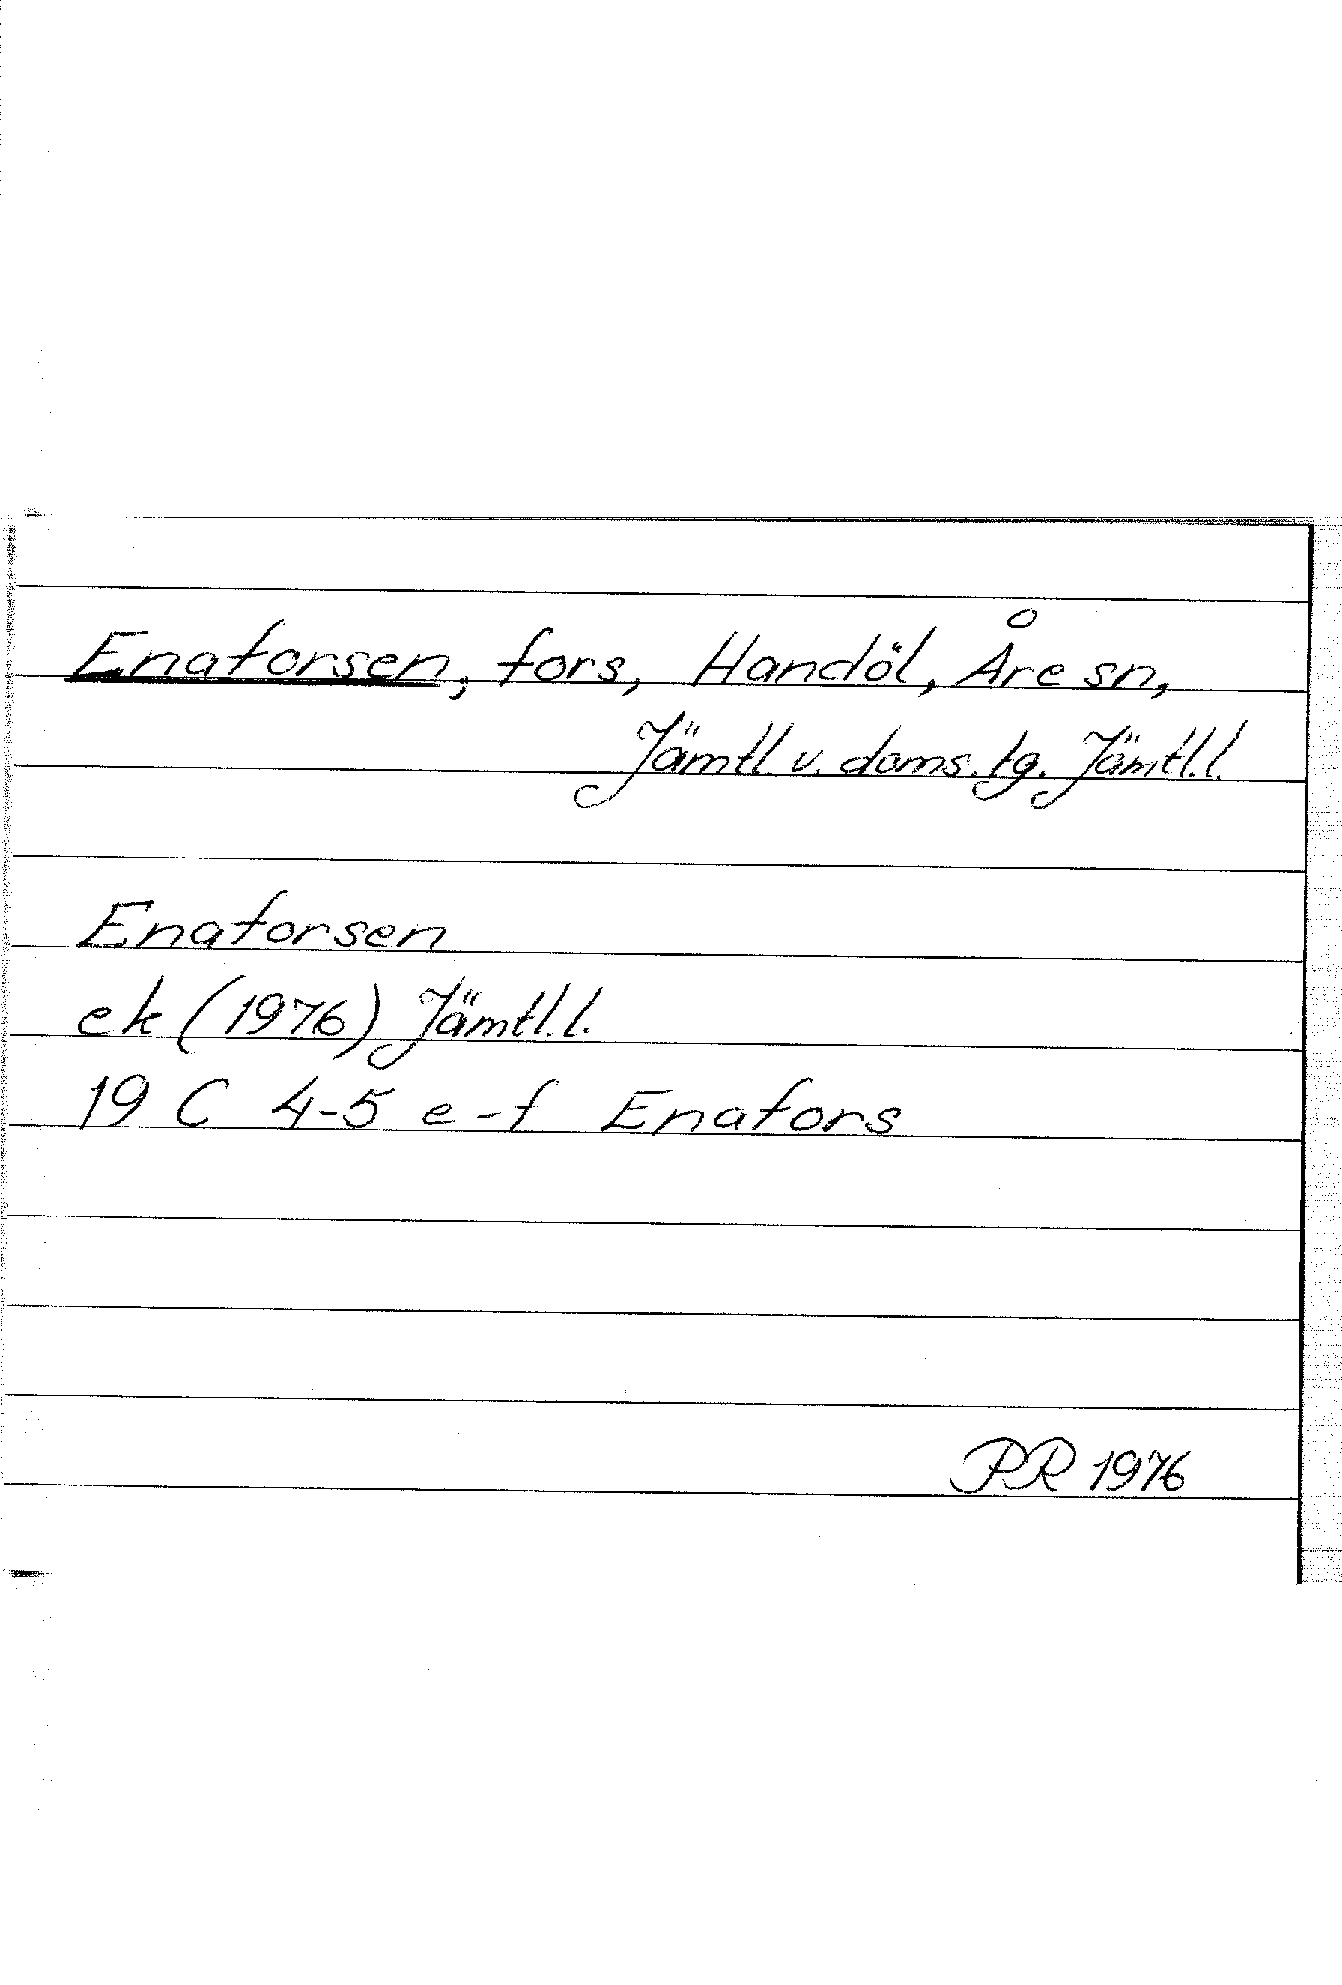 Enaforsen, fors, Handöl, Åre sn,
Jämtl. v. doms. tg. Jämtl. l.
Enaforsen
ek (1976) Jämtl. l.
19 C 4-5 e-f Enafors
PR 1976